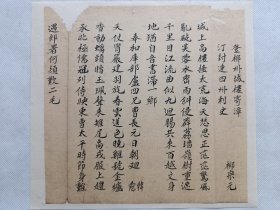 登柳州城樓寄漳
汀封連四州刺史
柳宗元
城上高樓接大荒海天愁思正茫茫驚風
亂颭芙蓉水密雨斜侵薜荔墻嶺樹重遮
千里目江流曲似九迴腸共來百越文身
地猶自音書滯一鄉
奉和庫部盧四兄曹長元日朝迴
韓愈
天仗宵嚴建羽旄春雲送色曉雞號金爐
香動螭頭暗玉佩聲來雉尾高戎服上趨
承北極儒冠列侍映東曹太平時節身難
遇郎署何須歎二毛